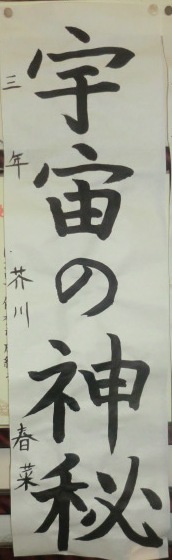 宇宙の神秘
三年 芥川春菜